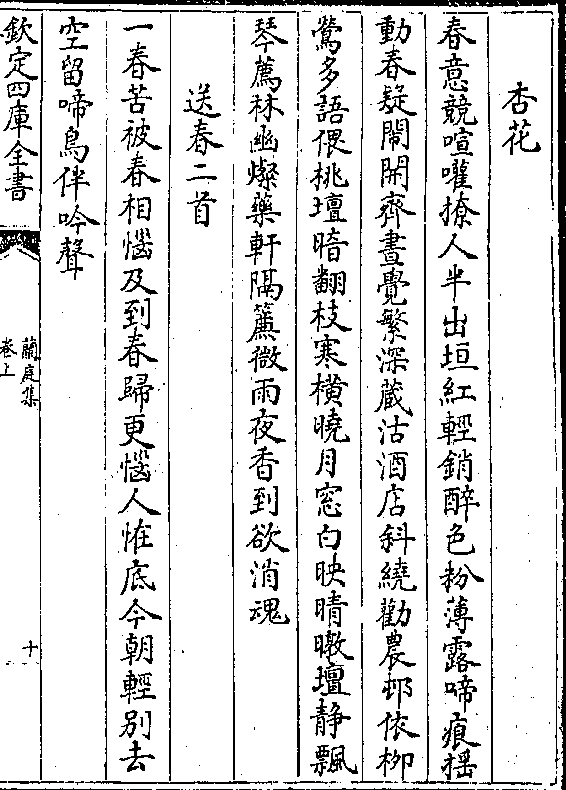 杏花
春意競喧嚾撩人半出垣紅輕銷醉色粉薄露啼痕揺
動春疑鬧開齊晝覺繁深蔵沽酒店斜繞勸農邨依柳
鶯多語偎桃壇暗翻枝寒橫曉月窓白映晴暾壇静飄
琴薦林幽燦藥軒隔簾微雨夜香到欲消魂
送春二首
一春苦被春相惱及到春歸更惱人恠底今朝輕別去
空留啼鳥伴吟聲
欽定四庫全書
蘭庭集
卷上
十